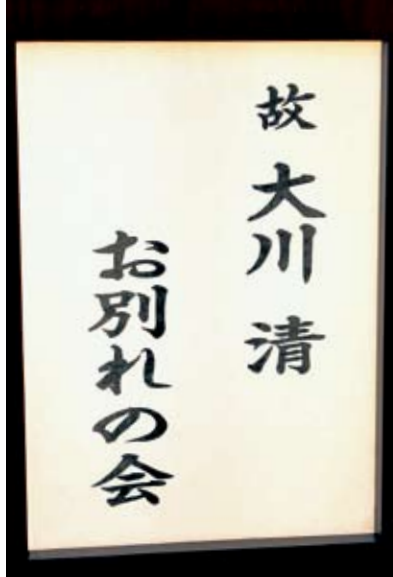 故 大川 清
お別れの会